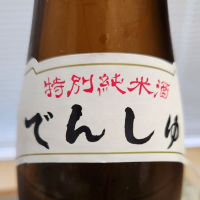 特別純米酒
でんしゅ